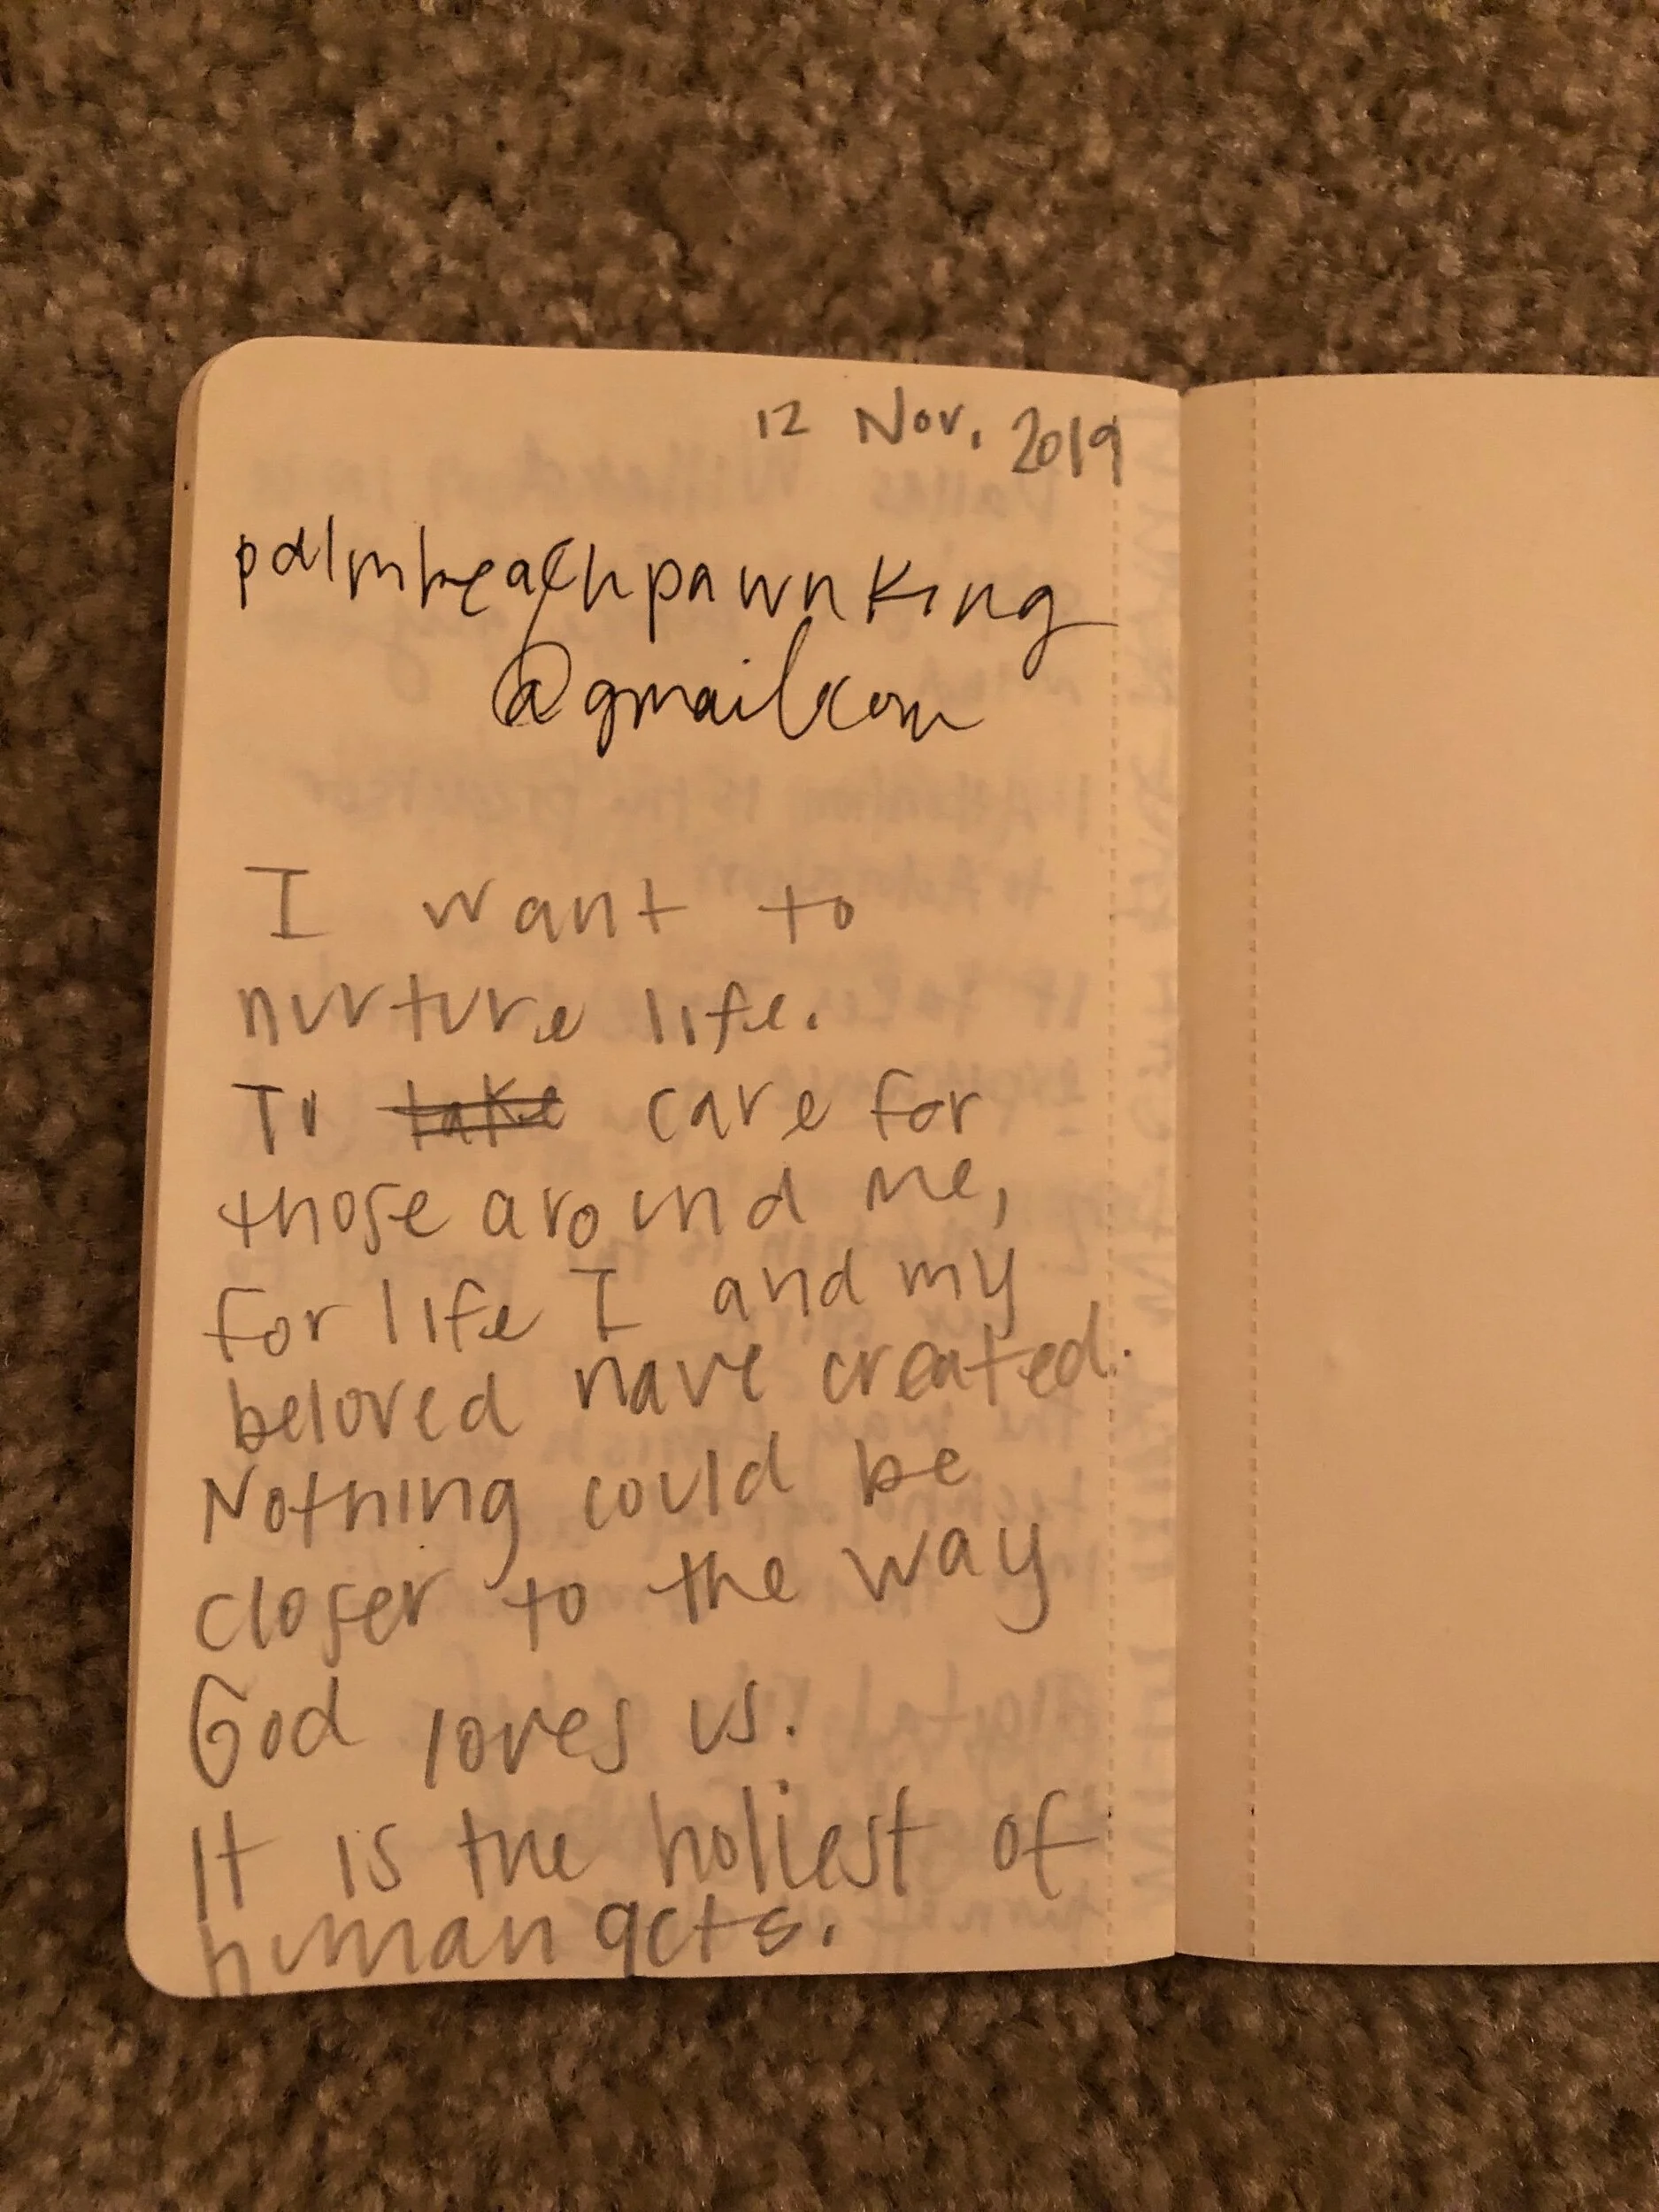 12 Nov. 2019
palmbeachpawnking
@gmail.com
I want to
nurture life.
To take care for
those around me,
for life I and my
beloved have created.
Nothing could be
closer to the way
God loves us.
It is the holiest of
human acts.